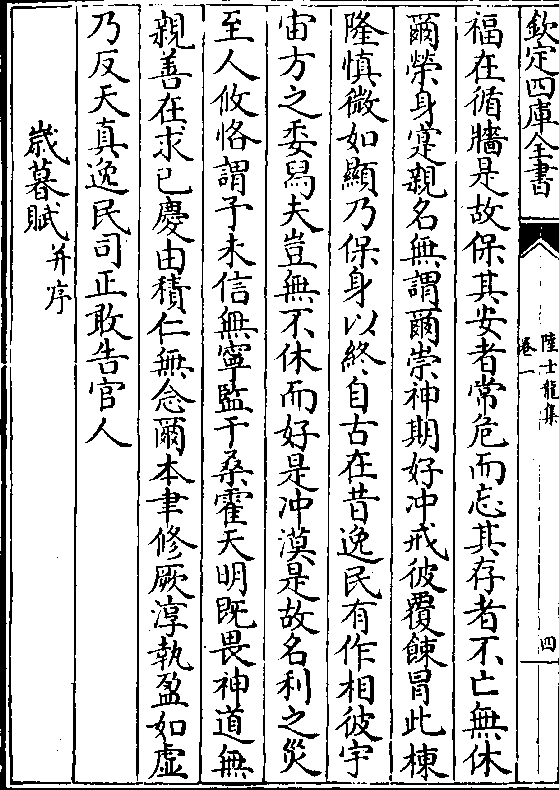 欽定四庫全書
陸士龍集
卷一
四
福在循牆是故保其安者常危而忘其存者不亡無休
爾榮身寔親名無謂爾崇神期好冲戒彼覆餗冐此棟
隆慎微如顯乃保身以終自古在昔逸民有作相彼宇
宙方之委舄夫豈無不休而好是冲漠是故名利之災
至人攸恪謂予未信無寧監于桑霍天明既畏神道無
親善在求已慶由積仁無念爾本聿修厥淳執盈如虚
乃反天真逸民司正敢告官人
歳暮賦并序